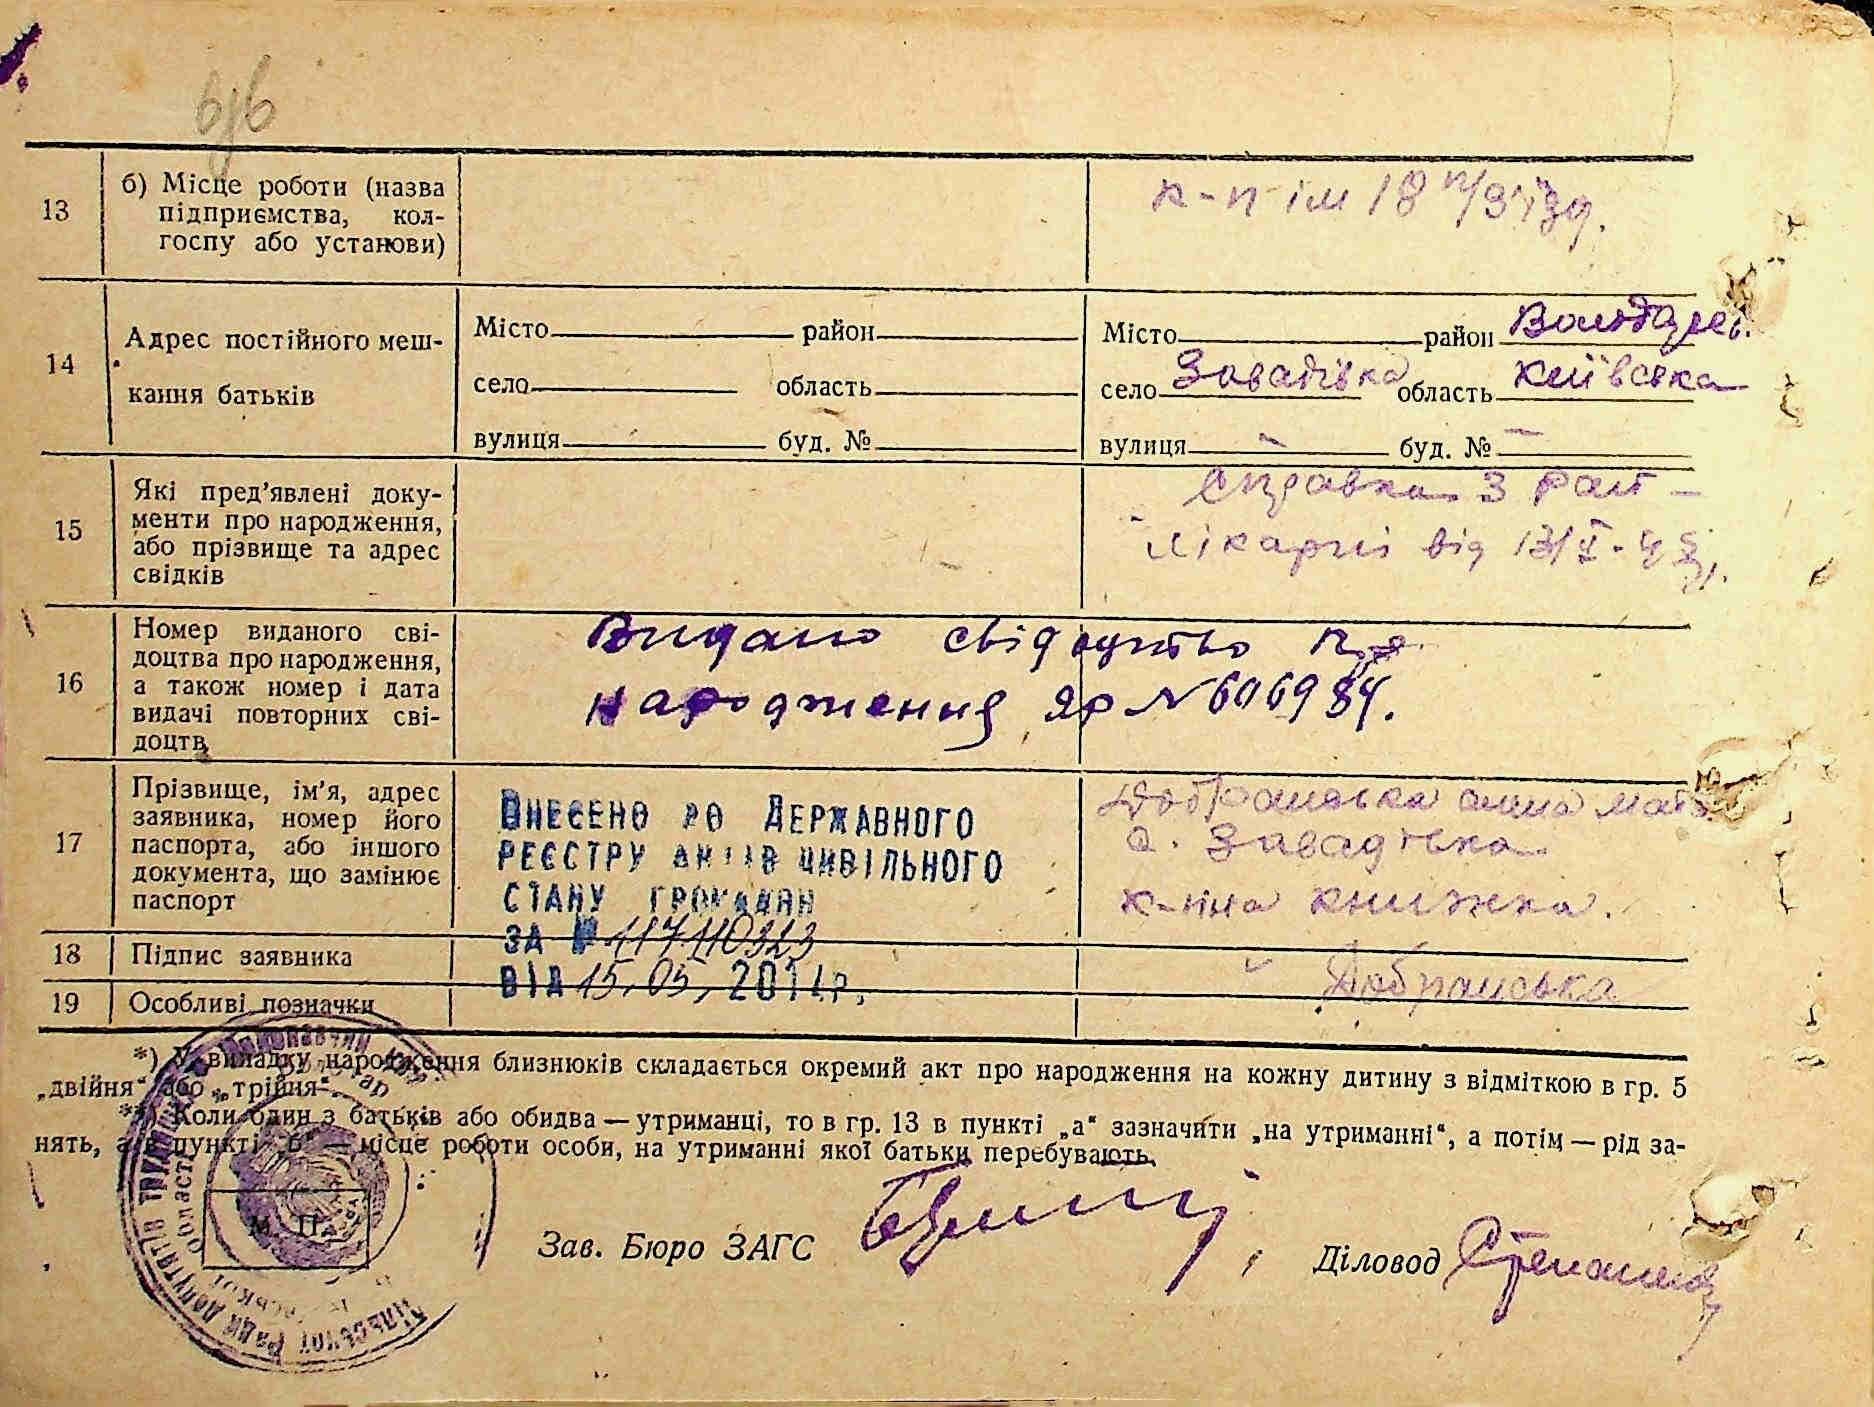 б/б
13 б) Місце роботи (назва
підприємства, кол-
госпу або установи)
к-п ім 18 п/з'їзд.
14 Адрес постійного меш-
кання батьків
Місто район
село область
вулиця буд. №
Місто район Володарсь.
село Завадівка область Київська
вулиця - буд. № -
15 Які пред'явлені доку-
менти про народження,
або прізвище та адрес
свідків
Справка з рай-
лікарні від
16 Номер виданого сві-
доцтва про народження,
а також номер і дата
видачі повторних сві-
доцтв
Видано свідоцтво про
народження ЯР № 606984.
17 Прізвище, ім'я, адрес
заявника, номер його
паспорта, або іншого
документа, що замінює
паспорт
ВНЕСЕНО ДО ДЕРЖАВНОГО
РЕЄСТРУ АКТІВ ЦИВІЛЬНОГО
СТАНУ ГРОМАДЯН
ЗА № 117110323
ВІД 15.05.201 р.
Добранська Анна
с. Завадівка
к-пна книжка.
18 Підпис заявника
Добранська
19 Особливі позначки
*) У випадку народження близнюків складається окремий акт про народження на кожну дитину з відміткою в гр. 5
„двійня“ або „трійня“.
**) Коли один з батьків або обидва — утриманці, то в гр. 13 в пункті „а“ зазначити „на утриманні“, а потім — рід за-
нять, а в пункті „б“ — місце роботи особи, на утриманні якої батьки перебувають.
М. П.
Зав. Бюро ЗАГС
Діловод